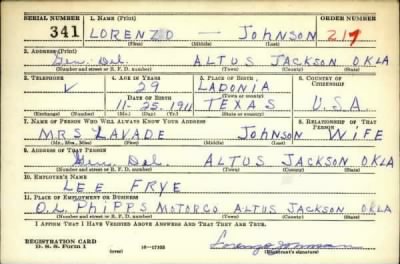 SERIAL NUMBER 1. NAME (Print) ORDER NUMBER
341 LORENZO — JOHNSON 217
(First) (Middle) (Last)
2. ADDRESS (Print)
Gen. Del. ALTUS JACKSON OKLA
(Number and street or R. F. D. number) (Town) (County) (State)
3. TELEPHONE 4. AGE IN YEARS 5. PLACE OF BIRTH 6. COUNTRY OF CITIZENSHIP
29 LADONIA
DATE OF BIRTH (Town or county)
11-25-1911 TEXAS U.S.A.
(Exchange) (Number) (Mo.) (Day) (Yr.) (State or country)
7. NAME OF PERSON WHO WILL ALWAYS KNOW YOUR ADDRESS 8. RELATIONSHIP OF THAT PERSON
MRS LAVADE JOHNSON WIFE
(Mr., Mrs., Miss) (First) (Middle) (Last)
9. ADDRESS OF THAT PERSON
Gen. Del. ALTUS JACKSON OKLA
(Number and street or R. F. D. number) (Town) (County) (State)
10. EMPLOYER'S NAME
LEE FRYE
11. PLACE OF EMPLOYMENT OR BUSINESS
O.L. PHIPPS MOTOR CO ALTUS JACKSON OKLA
(Number and street or R. F. D. number) (Town) (County) (State)
I AFFIRM THAT I HAVE VERIFIED ABOVE ANSWERS AND THAT THEY ARE TRUE.
REGISTRATION CARD
D. S. S. Form 1 (over) 16—17105 Lorenzo Johnson
(Registrant's signature)